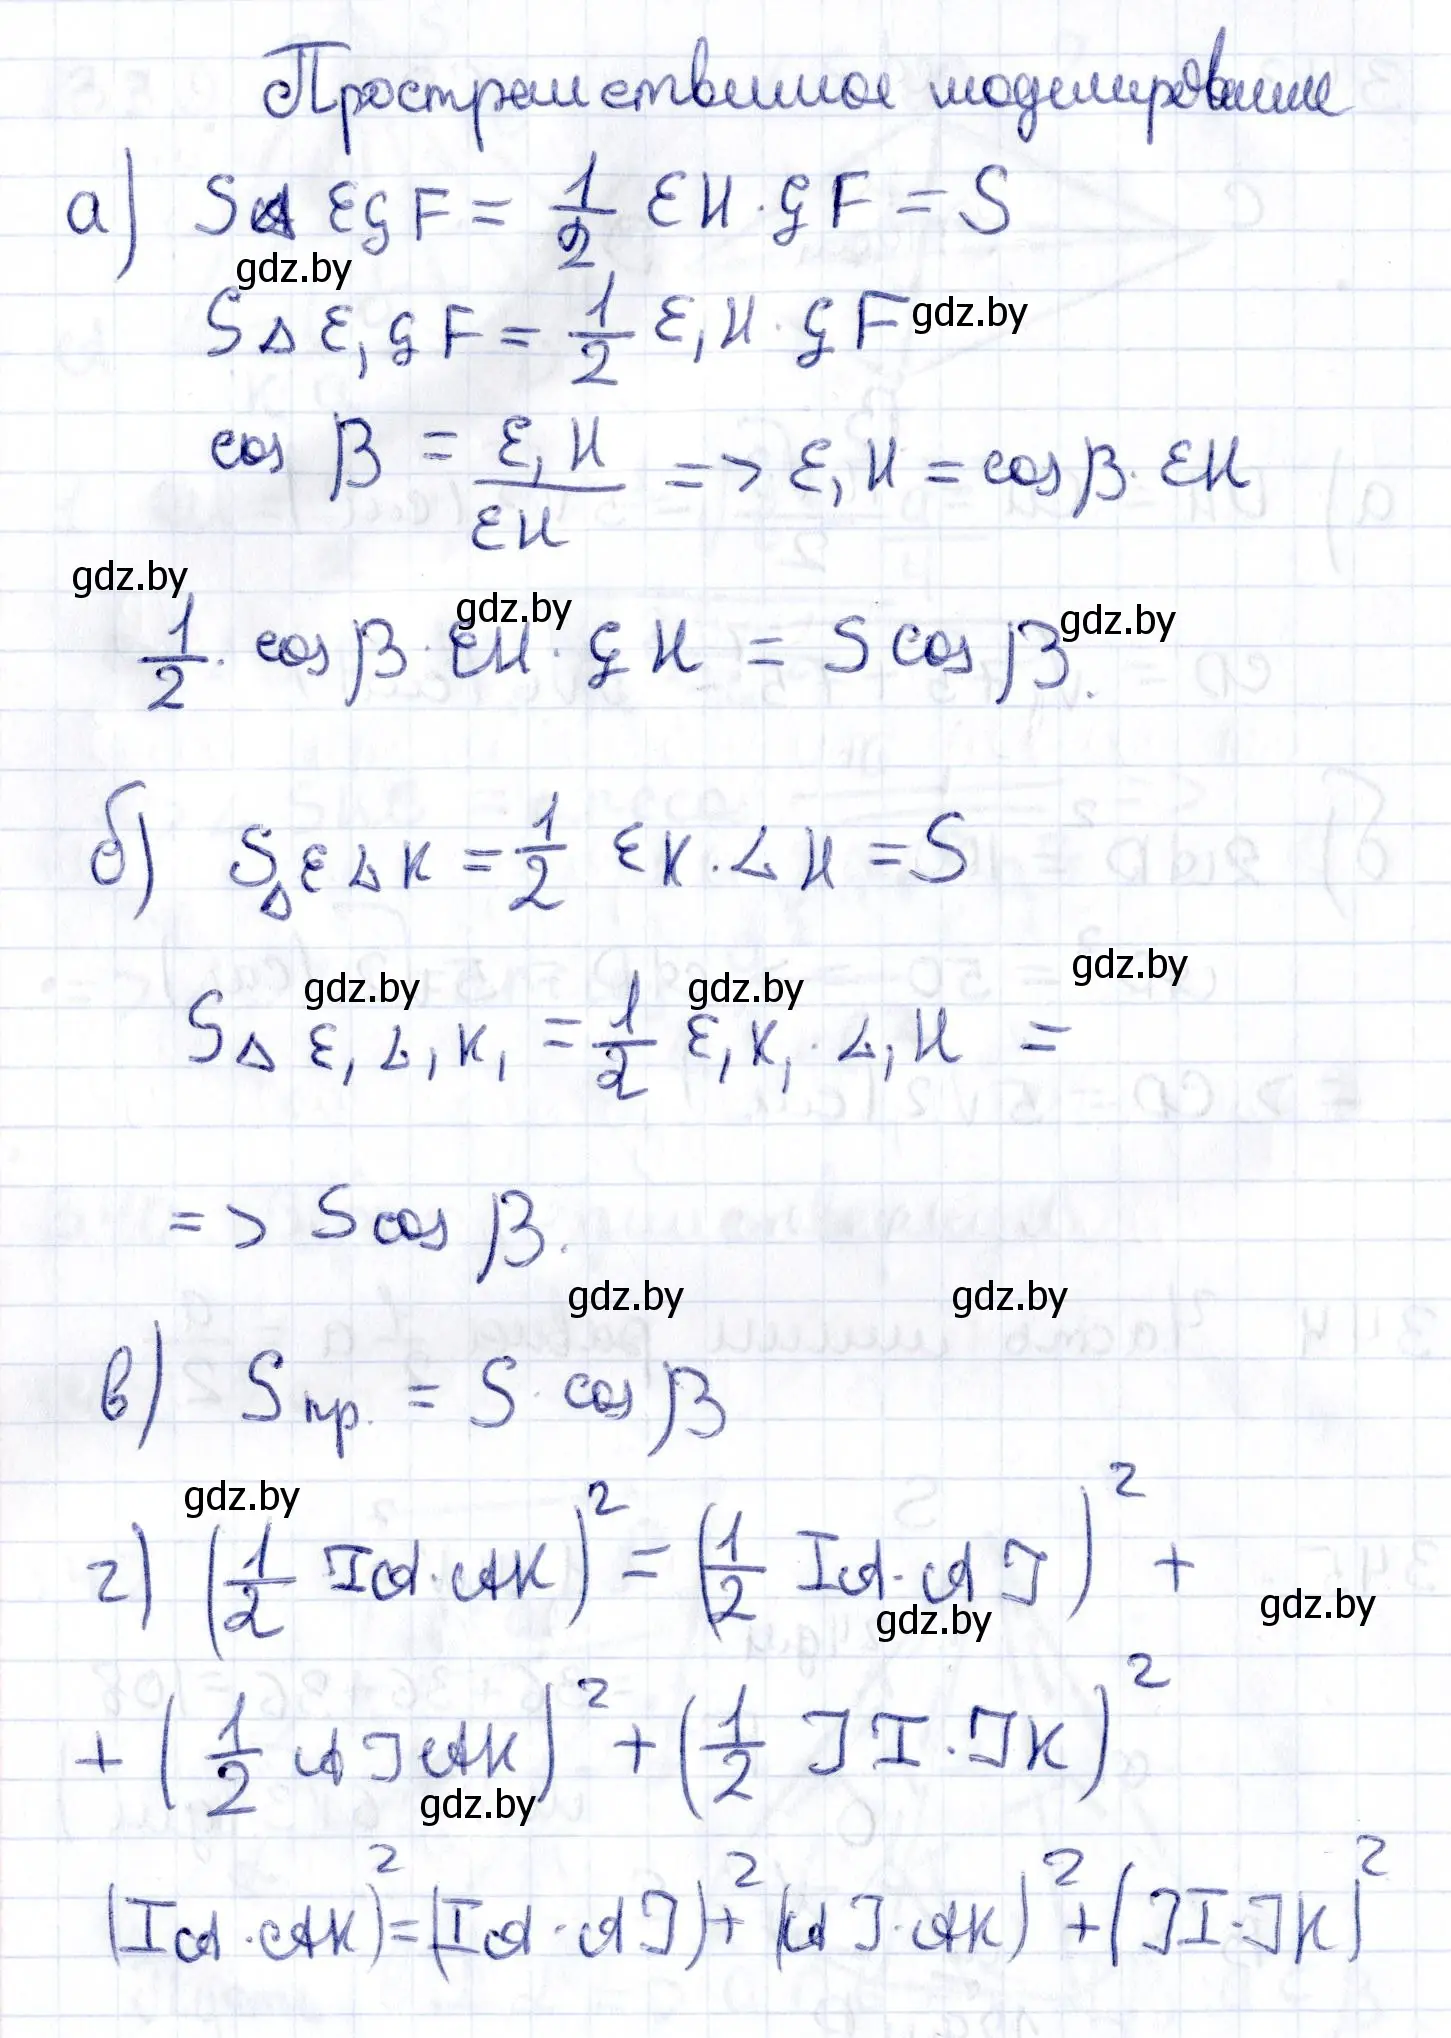 Пространственное моделирование
а) S△EGF = 1/2 EH · GF = S
gdz.by
S△E₁GF = 1/2 E₁H · GF
gdz.by
cos β = E₁H/EH => E₁H = cos β · EH
gdz.by
gdz.by
gdz.by
1/2 · cos β · EH · GH = S cos β.
б) S△ELK = 1/2 EK · LH = S
gdz.by
gdz.by
gdz.by
S△E₁L₁K₁ = 1/2 E₁K₁ · L₁H =
=> S cos β.
gdz.by
gdz.by
в) Sпр. = S · cos β
gdz.by
г) (1/2 IA · AK)² = (1/2 IA · AJ)² +
gdz.by
gdz.by
+ (1/2 AJ AK)² + (1/2 JI · JK)²
gdz.by
(IA · AK)² = (IA · AJ)² + (AJ · AK)² + (JI · JK)²